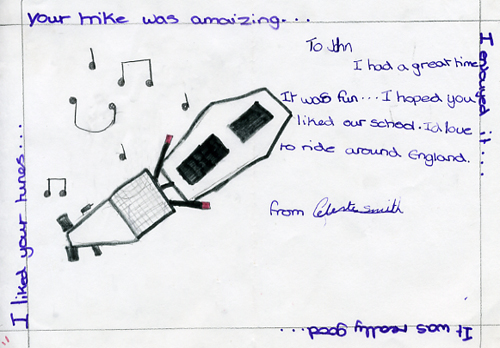 your trike was amaizing...
To John
I had a great time
It was fun... I hoped you
liked our school. I'd love
to ride around England.
from Celeste Smith
I enjoyed it....
It was really good....
I liked your tunes...